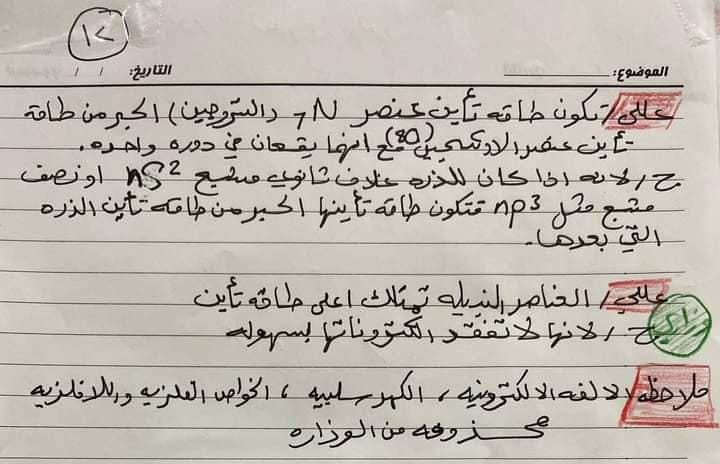 ١٢
الموضوع: التاريخ: / /
عللي / تكون طاقه تأين عنصر 7N (النتروجين) اكبر من طاقة
تأين عنصر الاوكسجين (8O) مع انهما يقعان في دوره واحده.
ج / لانه اذا كان للذره غلاف ثانوي مشبع nS2 او نصف
مشبع مثل np3 فتكون طاقة تأينها اكبر من طاقة تأين الذره
التي بعدها.
عللي / العناصر النبيله تمتلك اعلى طاقة تأين
ج / لانها لا تفقد الكتروناتها بسهوله
ملاحظه الالفه الالكترونيه ، الكهرسلبيه ، الخواص الفلزيه واللافلزيه
محذوفه من الوزاره